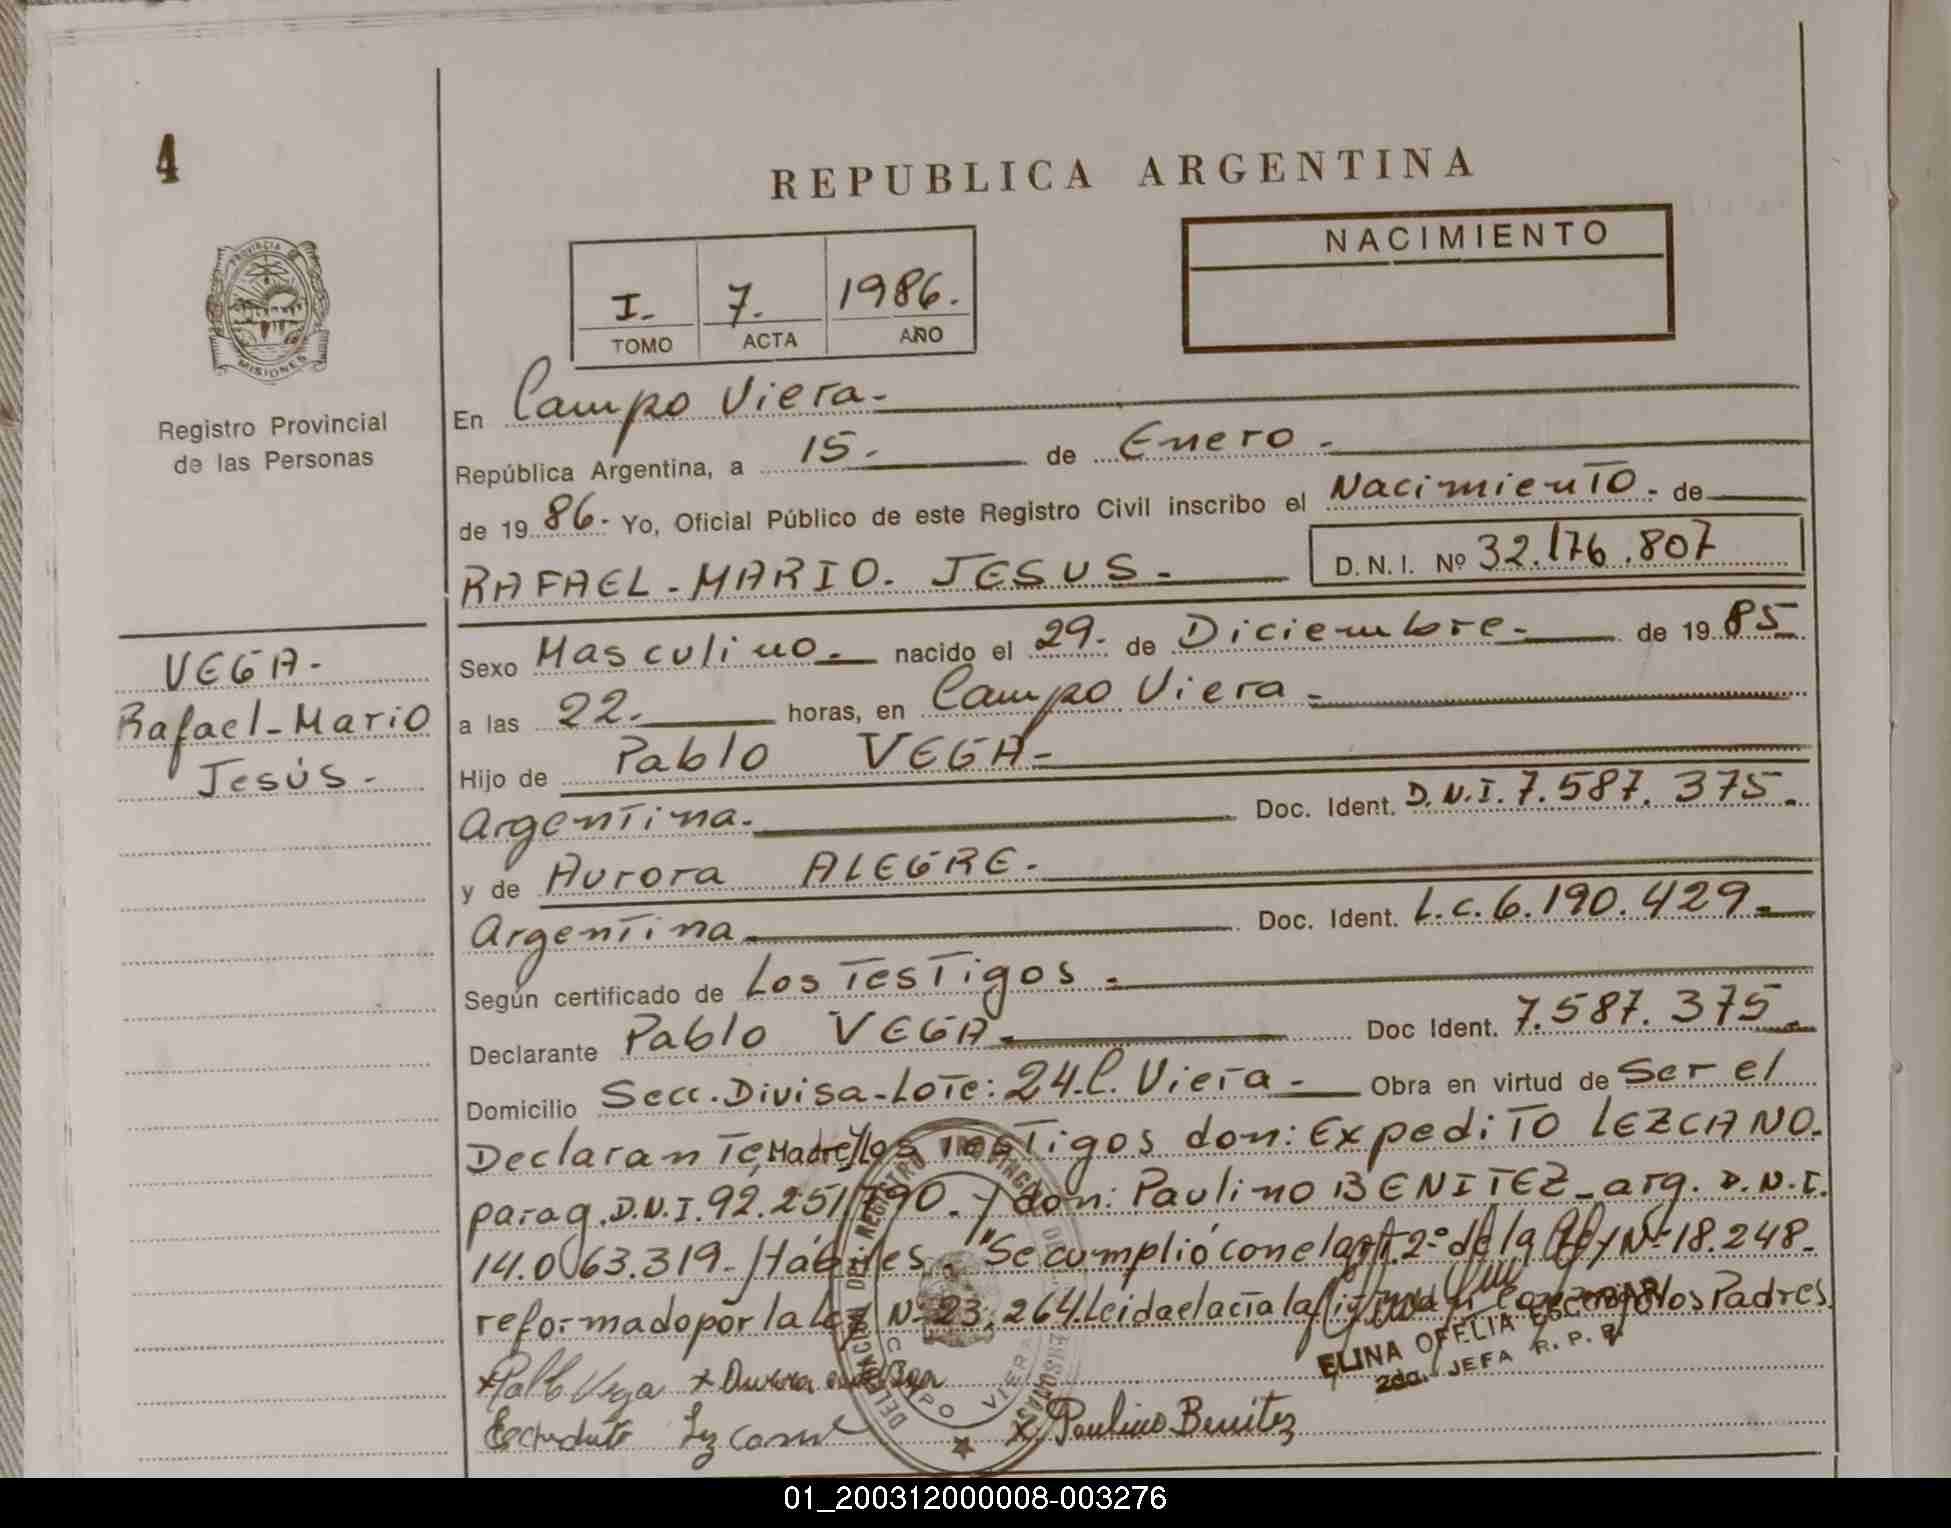 4
REPUBLICA ARGENTINA
NACIMIENTO
I. 7. 1986.
TOMO ACTA AÑO
PROVINCIA
MISIONES
Registro Provincial
de las Personas
En Campo Viera.-
República Argentina, a 15.- de Enero.-
de 19 86.- Yo, Oficial Público de este Registro Civil inscribo el Nacimiento.- de
RAFAEL-MARIO. JESUS.-
D.N.I. Nº 32.176.807
VEGA-
Rafael-Mario
Jesús.-
Sexo Masculino.- nacido el 29.- de Diciembre.- de 19 85
a las 22.- horas, en Campo Viera.-
Hijo de Pablo VEGA-
Argentina.- Doc. Ident. D.N.I. 7.587.375.-
y de Aurora ALEGRE.-
Argentina- Doc. Ident. L.C. 6.190.429.-
Según certificado de Los Testigos.-
Declarante Pablo VEGA- Doc Ident. 7.587.375.-
Domicilio Secc. Divisa-Lote: 24.C. Viera- Obra en virtud de Ser el
Declarante, Madre y los Testigos don: Expedito LEZCANO.
parag. D.N.I. 92.251.790.- y don: Paulino BENITEZ-arg. D.N.I.
14.063.319.- Hábiles. "Se cumplió con el art. 2º de la Ley Nº 18.248-
reformado por la Ley Nº 23.264. Leida el acta la los Padres
x Pablo Vega x Aurora
ELINA OFELIA ESCOBAR
2da. JEFA R.P.P.
x Paulino Benítez
DELEGACION DEL REGISTRO PROVINCIAL DE LAS PERSONAS
CAMPO VIERA
01_200312000008-003276